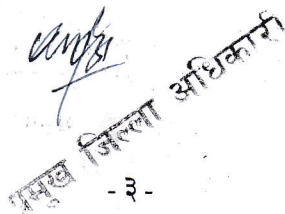 प्रमुख जिल्ला अधिकारी
- ३ -